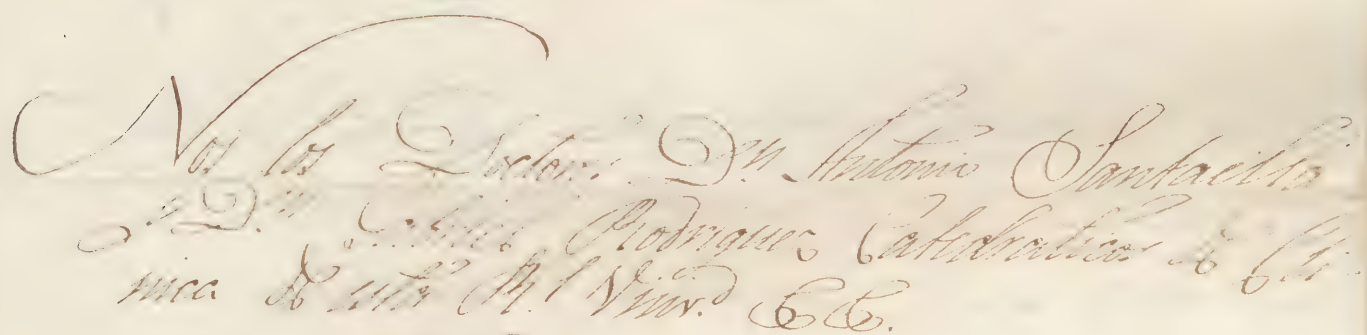 Nos los Doctor.s Dn. Antonio Santaella
Dn. Rodriguez Catedraticos de Cli
nica de esta Rl. Univ.d &&.